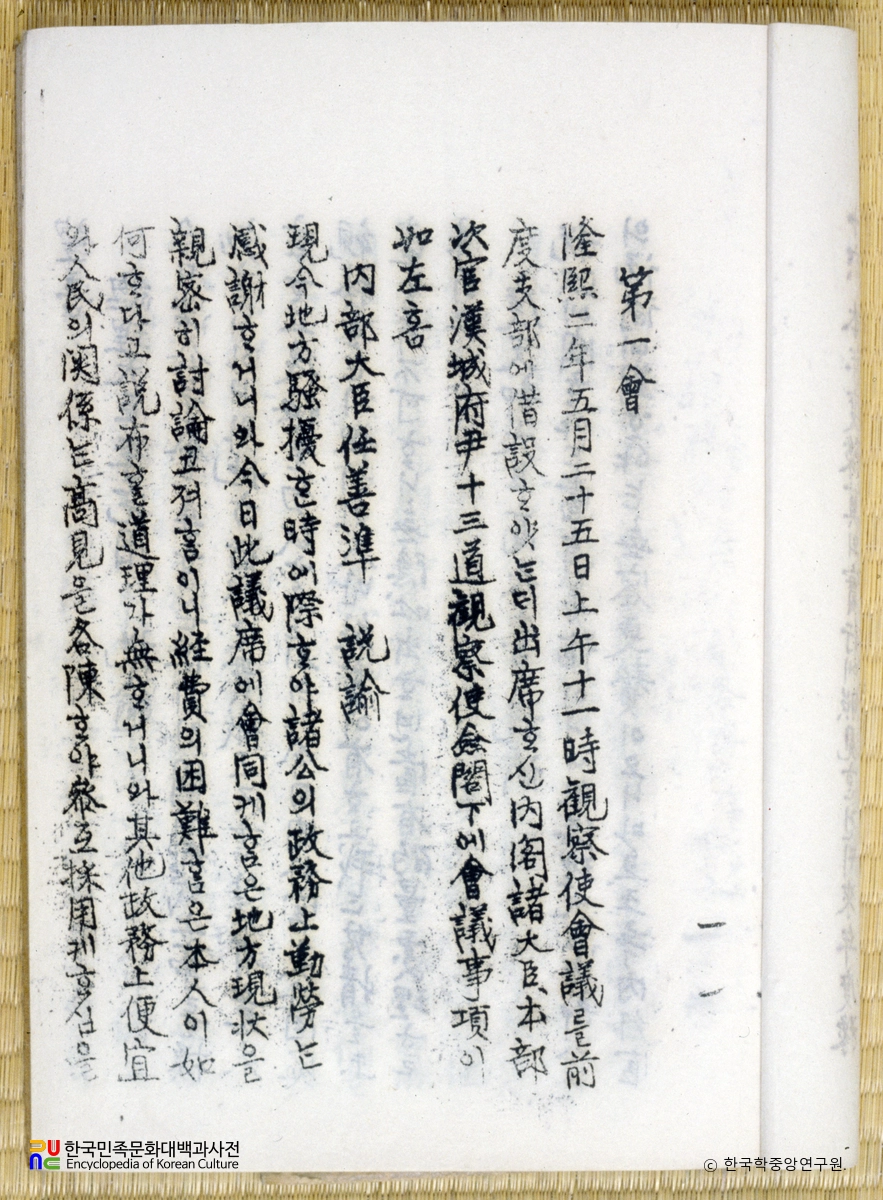 第一會
隆熙二年五月二十五日上午十一時觀察使會議를前
度支部에借設ᄒᆞ얏ᄂᆞᆫᄃᆡ出席ᄒᆞ신內閣諸大臣、本部
次官漢城府尹十三道觀察使僉閣下에會議事項이
如左홈
內部大臣任善準 說諭
現今地方騷擾ᄒᆞᆫ時이際ᄒᆞ야諸公의政務上勤勞ᄂᆞᆫ
感謝ᄒᆞ거니와今日此議席에會同케홈은地方現狀을
親密히討論코져홈이니経費의困難홈은本人이如
何ᄒᆞ다고說布ᄒᆞᆯ道理가無ᄒᆞ거니와其他政務上便宜
와人民의関係ᄂᆞᆫ高見을各陳ᄒᆞ야參互採用케ᄒᆞ심을
一一
한국민족문화대백과사전
Encyclopedia of Korean Culture
© 한국학중앙연구원